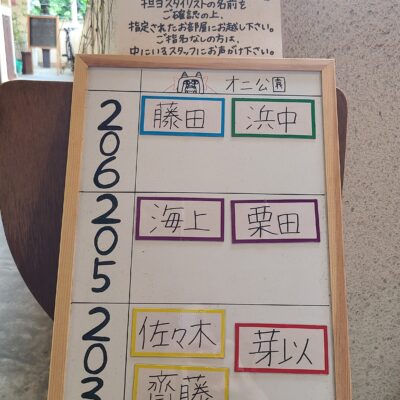 担当スタイリストの名前を
ご確認の上、
指定されたお部屋にお越し下さい。
ご指名なしの方は、
中にいるスタッフにお声がけ下さい。
オニ公園
206
藤田 浜中
205
海上 栗田
203
佐々木 芽以
齋藤